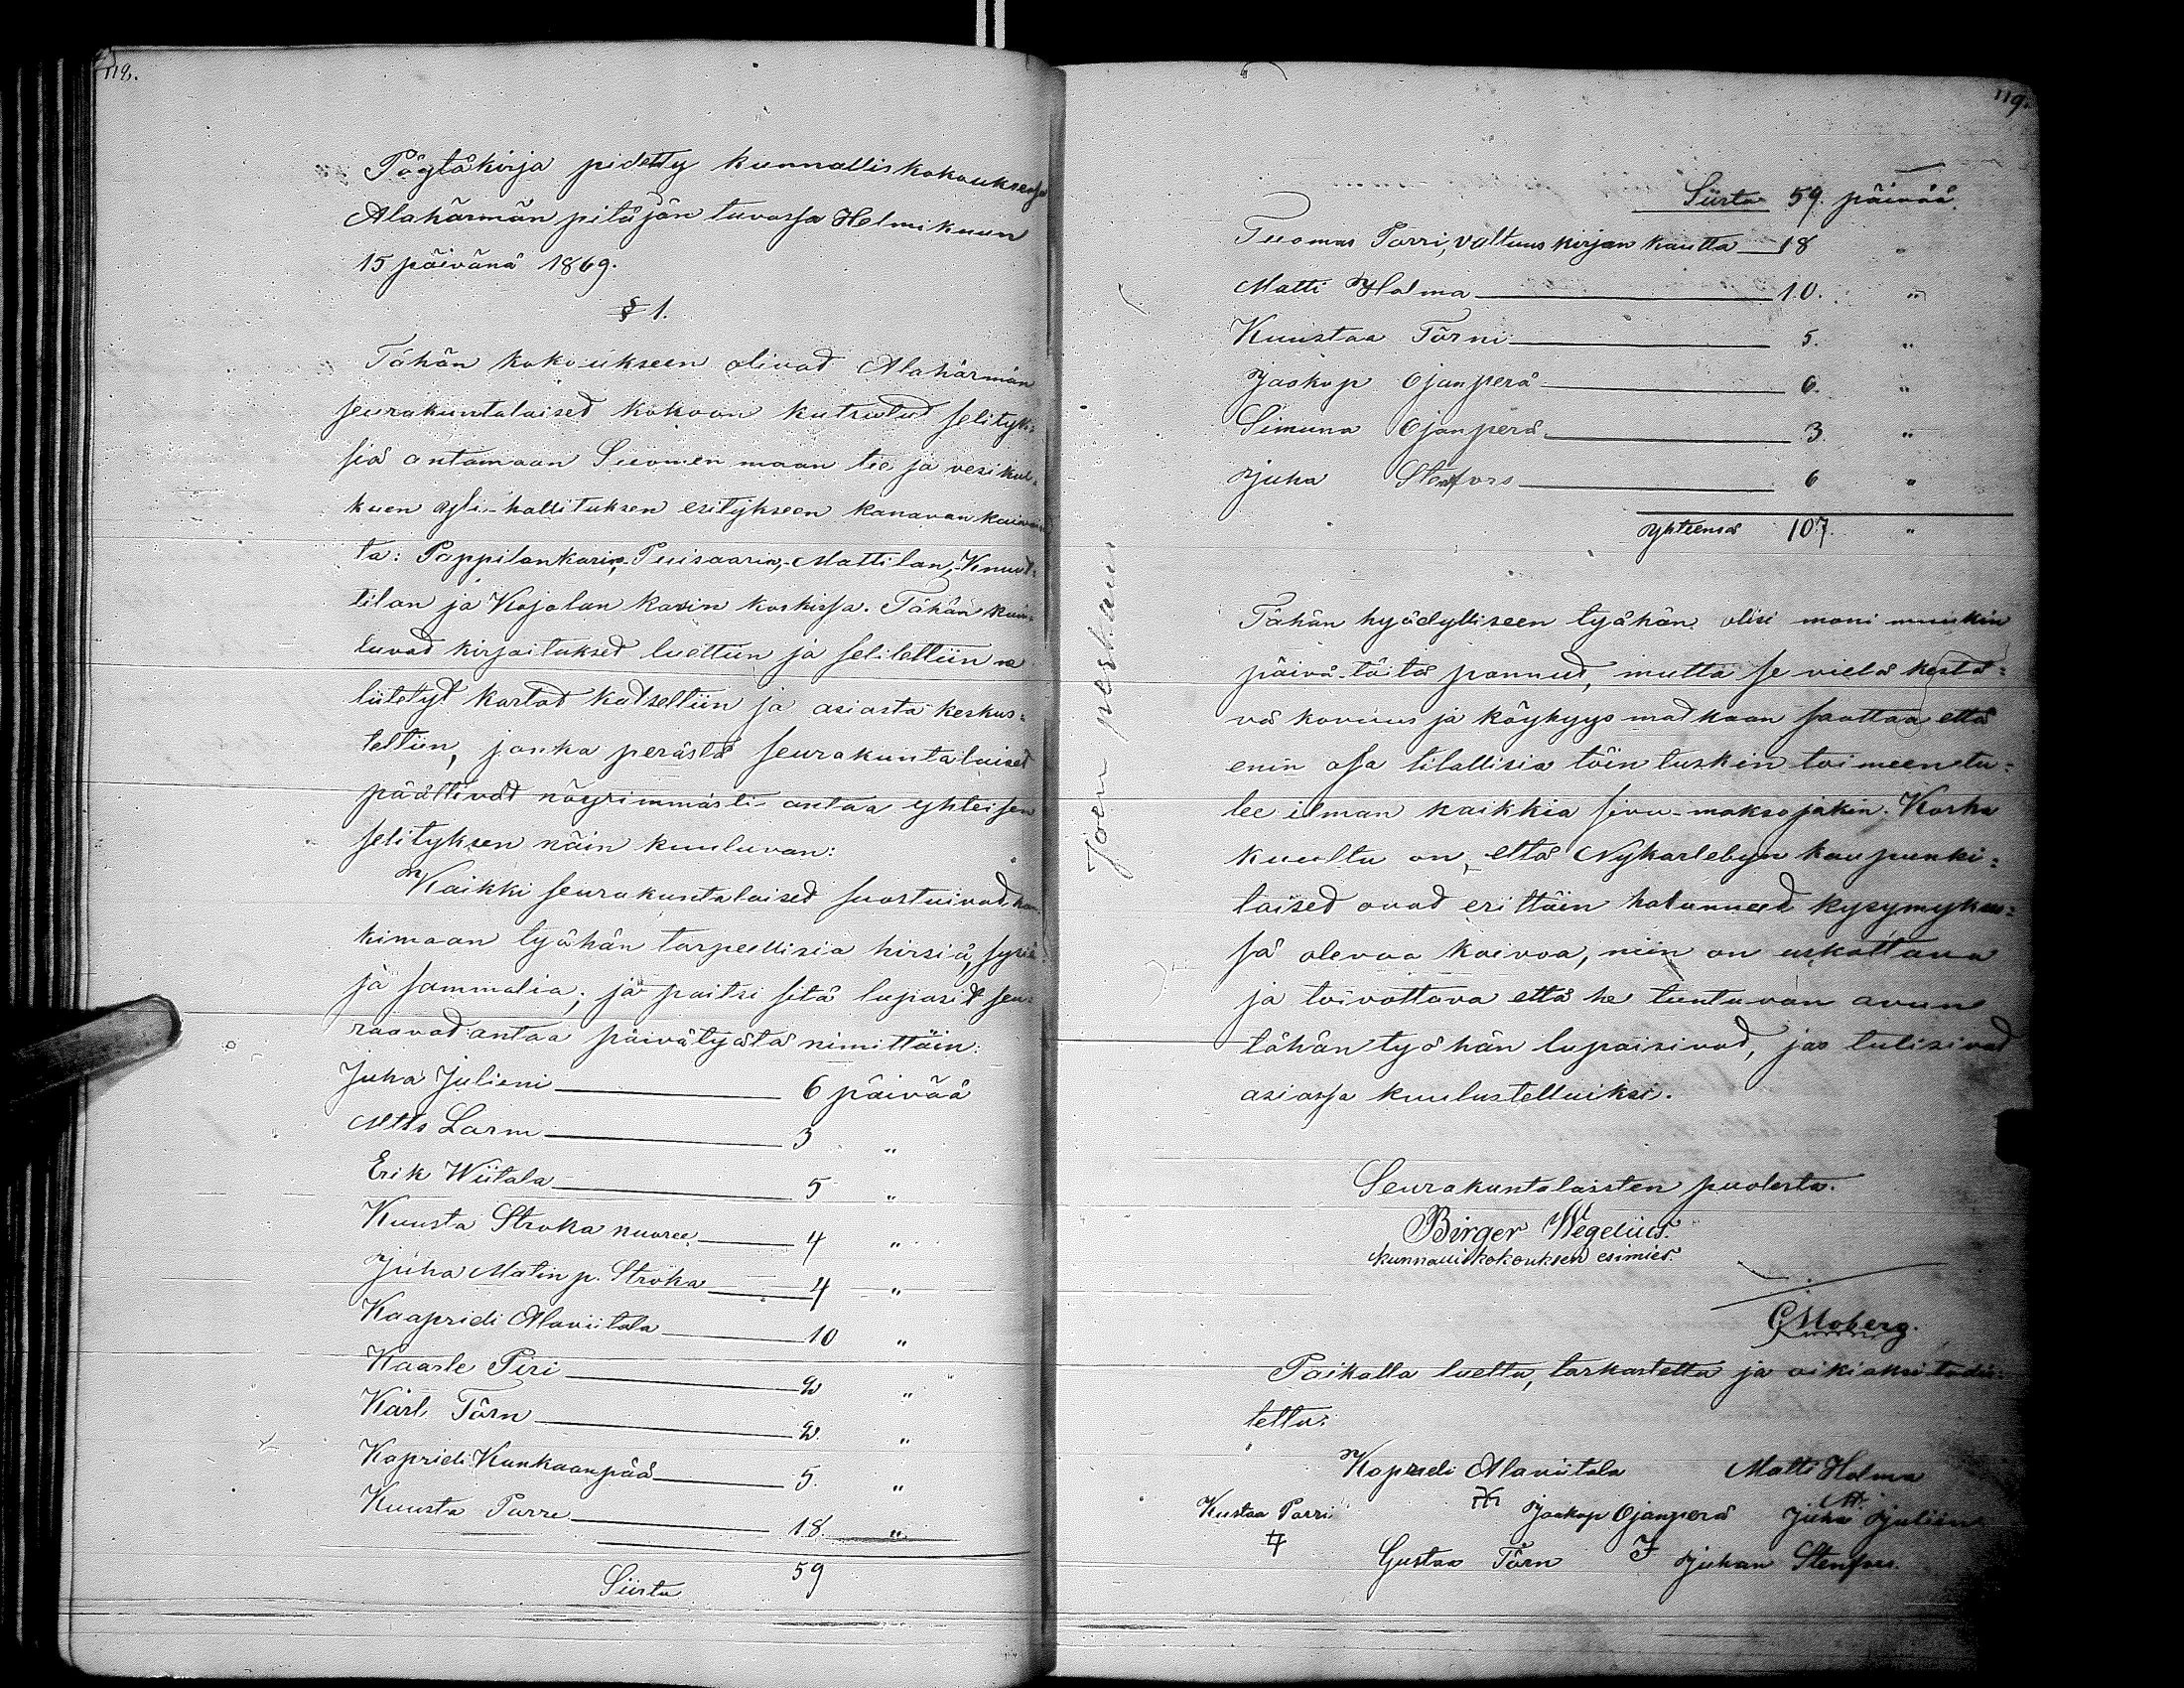 118.
Pöytäkirja pidetty kunnalliskokouksessa
Alahärmän pitäjän tuvassa Helmikuun
15 päivänä 1869.
§ 1.
Tähän kokoukseen olivad Alahärmän
seurakuntalaised kokoon kutsutud selityk-
siä antamaan Suomen maan tie ja vesi kul-
kuen yli-hallituksen esitykseen kanavan kaivan
ta: Pappilankarin, Puisaarin, Mattilan, Knuut-
tilan ja Kojolan karin koskissa. Tähän kuu-
luvad kirjoituksed luettiin ja selitettiin ne
liitetyt kartad katseltiin ja asiasta keskus-
teltiin, jonka perästä seurakuntalaised
päättivät nöyrimmästi antaa yhteisen
selityksen näin kuuluvan:
Kaikki seurakuntalaised suostuivad han-
kimaan työhön tarpeellisia hirsiä,
ja sammalia; ja paitsi sitä lupasit seu-
raavad antaa päivätyötä nimittäin:
Juha Julieni 6 päivää
Matts Larm 3 "
Erik Wiitala 5 "
Kuusta Stroka nuoree 4 "
Juha Matin p. Stroka 4 "
Kaapridi Alaviitala 10 "
Kaarle Piri 2 "
Karl Törn 2. "
Kapridi Kunkaanpää 5. "
Kuusta Parre 18. "
Siirto 59
119.
Siirto 59. päivää
Tuomas Parri, valtuus kirjan kautta 18 "
Matti Holma 10. "
Kuustaa Törni 5. "
Jaakop Ojanperä 6. "
Simuna Ojanperä 3. "
Juha Stenfors 6 "
Yhteensä 107. "
Joen perkaus
Tähän hyödylliseen työhön olisi moni muukin
päivä-töitä pannud, mutta se vielä kestä-
vä kovuus ja köyhyys matkaan saattaa että
enin osa tilallisia töin tuskin toimeen tu-
lee ilman kaikkia sivu-maksojakin. Koska
kuultu on, että Nykarlebyn kaupunki-
laised ovad erittäin halunneed kysymykses-
sä olevaa kaivoa, niin on uskottava
ja toivottava että he tuntuvan avun
tähän työhön lupaisivad, jos tulisivad
asiassa kuulustelluiksi.
Seurakuntalaisten puolesta.
Birger Wegelius.
kunnallis kokouksen esimies.
C Moberg.
Paikalla luettu, tarkastettu ja oikiaksi todis-
tettu:
Kapridi Alaviitala Matti Holma
Kustaa Parri Jaakop Ojanperä Juha Julien
Gustaa Törn Juhan Stenfors.